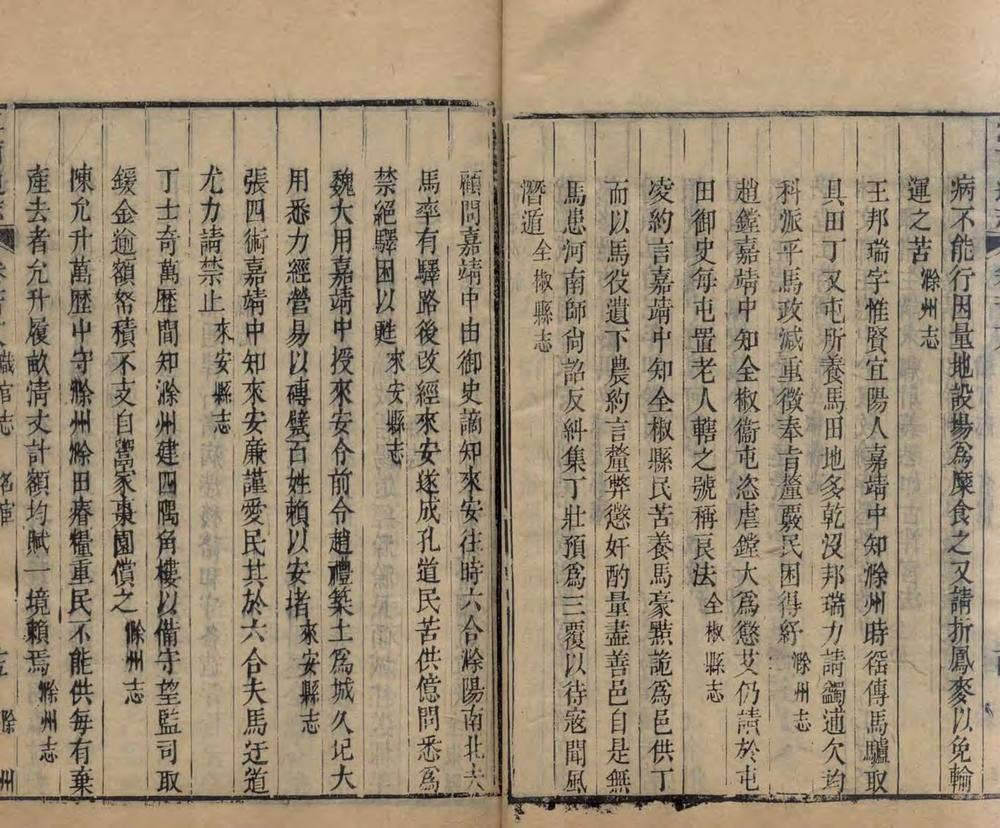 病不能行因量地設場爲糜食之又請折鳳麥以免輸
運之苦滁州志
王邦瑞字惟賢宜陽人嘉靖中知滁州時徭傳馬驢取
具田丁又屯所養馬田地多乾沒邦瑞力請蠲逋欠均
科派平馬政減重徵奉肯釐嚴民困得紓滁州志
趙鏜嘉靖中知全椒衞屯恣虐鏜大爲懲艾仍請於屯
田御史每屯置老人轄之號稱良法全椒縣志
凌約言嘉靖中知全椒縣民苦養馬豪黠詭爲邑供丁
而以馬役遺下農約言釐弊懲奸酌量盡善邑自是無
馬患河南師尙詔反糾集丁壯預爲三覆以待寇聞風
潛遁全椒縣志
顧問嘉靖中由御史謫知來安往時六合滁陽南北夫
馬率有驛路後改經來安遂成孔道民苦供億問悉爲
禁絕驛困以甦來安縣志
魏大用嘉靖中授來安令前令趙禮築土爲城久圮大
用悉力經營易以磚甓百姓賴以安堵來安縣志
張四術嘉靖中知來安廉謹愛民其於六合夫馬迂道
尤力請禁止來安縣志
丁士奇萬歷間知滁州建四隅角樓以備守望監司取
鍰金逾額帑積不支自鬻家棗園償之滁州志
陳允升萬歷中守滁州滁田瘠糧重民不能供每有棄
產去者允升履畝淸丈計額均賦一境賴焉滁州志
職官志 名宦 滁州